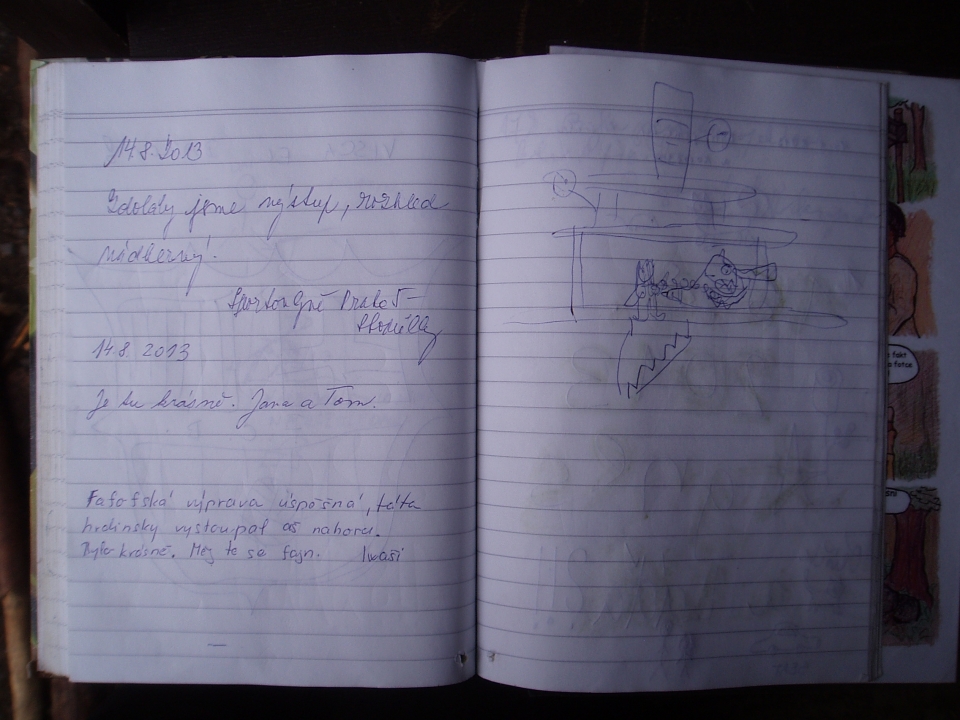 14.8.2013
Zdolaly jsme výstup, rozhled
nádherný.
14.8. 2013
Je tu krásně. Jana a Tom.
Fafofská výprava úspěšná, táta
hrdinsky vystoupal až nahoru.
Bylo krásně. Mějte se fajn. Iwaši
fakt
fotce